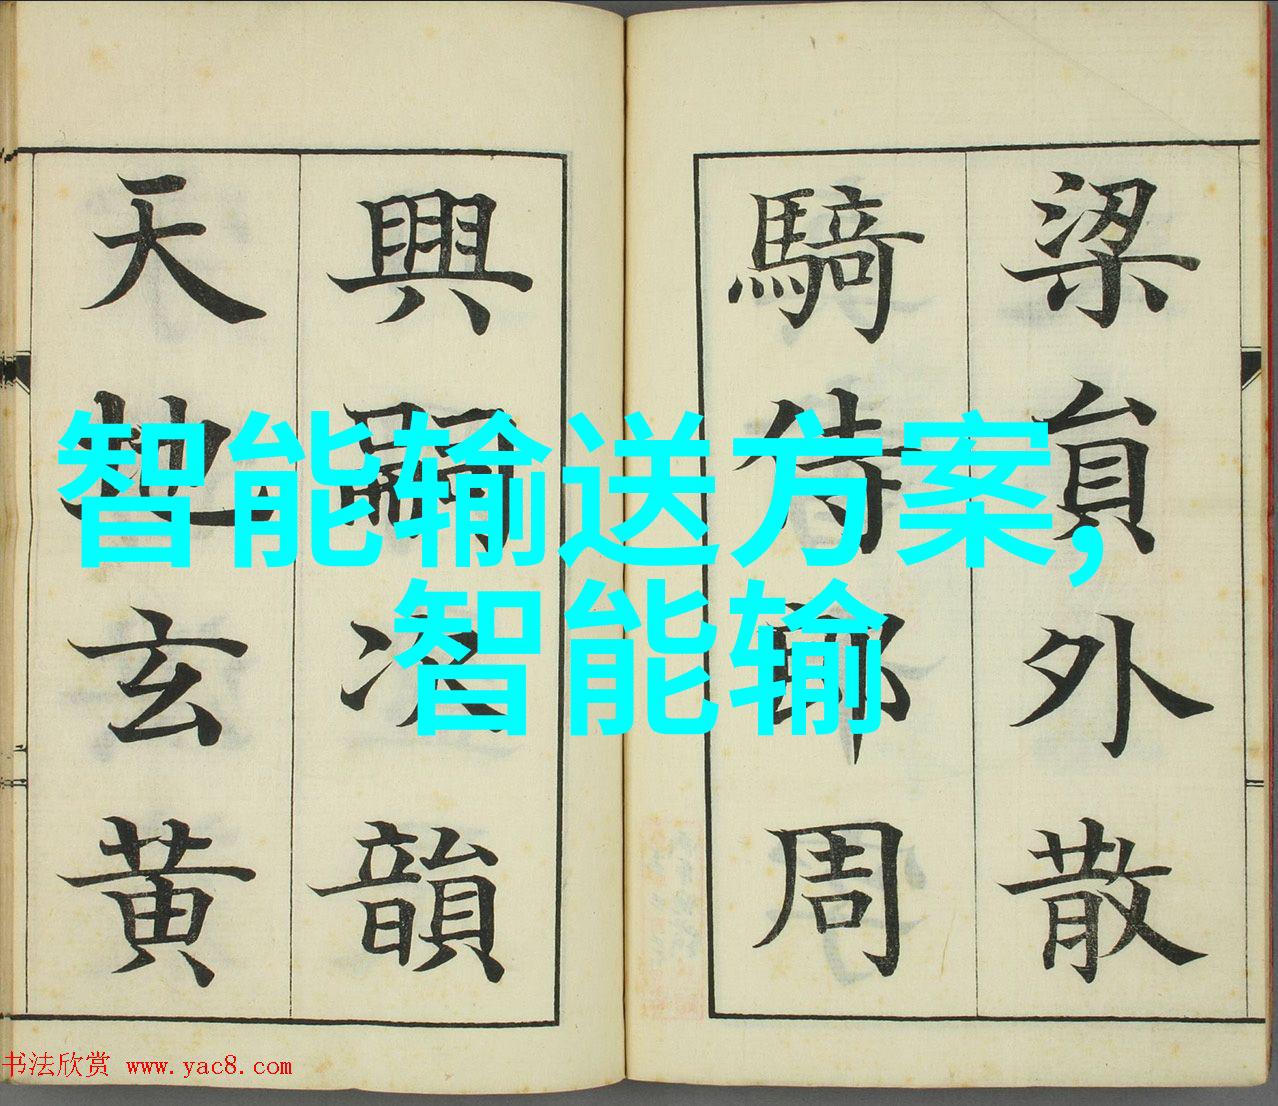 梁貟外散
騎侍郎周
興嗣次韻
天地玄黄
智能输送方案,
智能输
书法欣赏 www.yac8.com